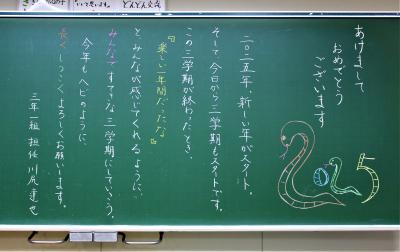 あけまして
おめでとう
ございます
二〇二五年、新しい年がスタート。
そして今日から三学期もスタートです。
この三学期が終わったとき、
『楽しい一年間だったな』
とみんなが感じてくれるように、
みんなですてきな三学期にしていこう。
今年もヘビのように、
長くしつこくよろしくお願いします。
三年一組 担任 川尻達也